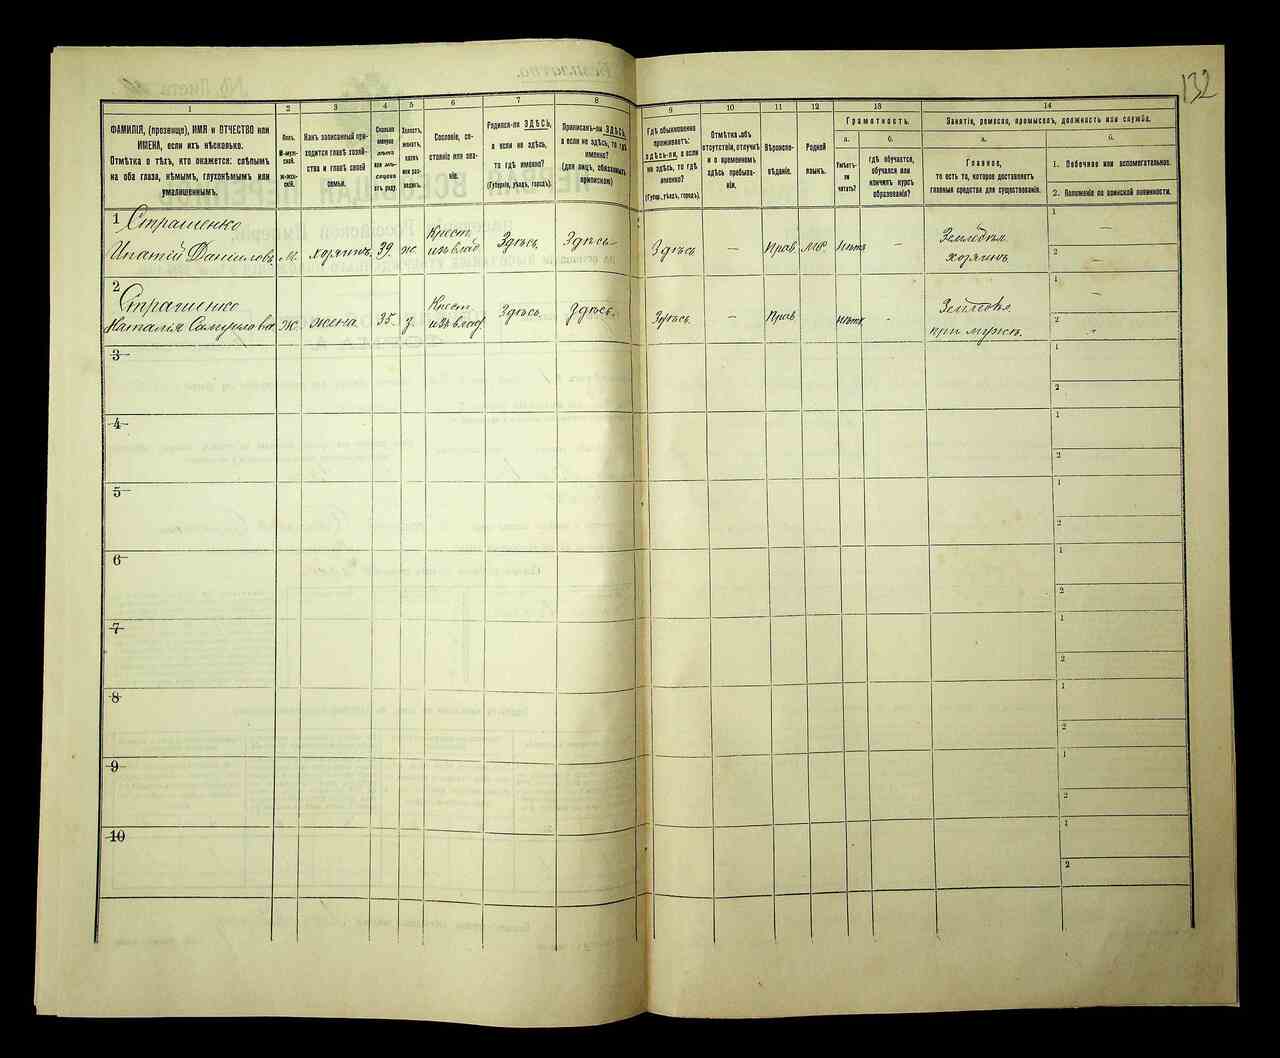 132
1
2
3
4
5
6
7
8
9
10
11
12
13
14
ФАМИЛІЯ, (прозвище), ИМЯ и ОТЧЕСТВО или
ИМЕНА, если ихъ нѣсколько.
Отмѣтка о тѣхъ, кто окажется: слѣпымъ
на оба глаза, нѣмымъ, глухонѣмымъ или
умалишеннымъ.
Полъ.
М-муж-
ской.
Ж-жен-
скій.
Какъ записанный при-
ходится главѣ хозяй-
ства и главѣ своей
семьи.
Сколько
минуло
лѣтъ
или мѣ-
сяцевъ
отъ роду.
Холостъ,
женатъ,
вдовъ
или раз-
веденъ.
Сословіе, со-
стояніе или зва-
ніе.
Родился-ли ЗДѢСЬ,
а если не здѣсь,
то гдѣ именно?
(Губернія, уѣздъ, городъ).
Приписанъ-ли ЗДѢСЬ,
а если не здѣсь, то гдѣ
именно?
(для лицъ, обязанныхъ
припискою)
Гдѣ обыкновенно
проживаетъ:
здѣсь-ли, а если
не здѣсь, то гдѣ
именно?
(Губер., уѣздъ, городъ).
Отмѣтка объ
отсутствіи, отлучкѣ
и о временномъ
здѣсь пребыва-
ніи.
Вѣроиспо-
вѣданіе.
Родной
языкъ.
Грамотность.
а.
б.
Умѣетъ-
ли
читать?
гдѣ обучается,
обучался или
кончилъ курсъ
образованія?
Занятіе, ремесло, промыселъ, должность или служба.
а.
б.
Главное,
то есть то, которое доставляетъ
главныя средства для существованія.
1. Побочное или вспомогательное.
2. Положеніе по воинской повинности.
1 Страшенко
Ипатій Даниловъ М. хозяинъ. 39. ж. Крест. изъ влад. Здѣсь. Здѣсь. Здѣсь — Прав. Мр. Нѣтъ - Земледѣл. хозяинъ 1 — 2 —
2 Страшенко
Наталія Ж. жена. 35. з. Крест. изъ влад Здѣсь. Здѣсь. Здѣсь. — Прав нѣтъ - при мужѣ. 1 — 2
3 1 2
4 1 2
5 1 2
6 1 2
7 1 2
8 1 2
9 1 2
10 1 2